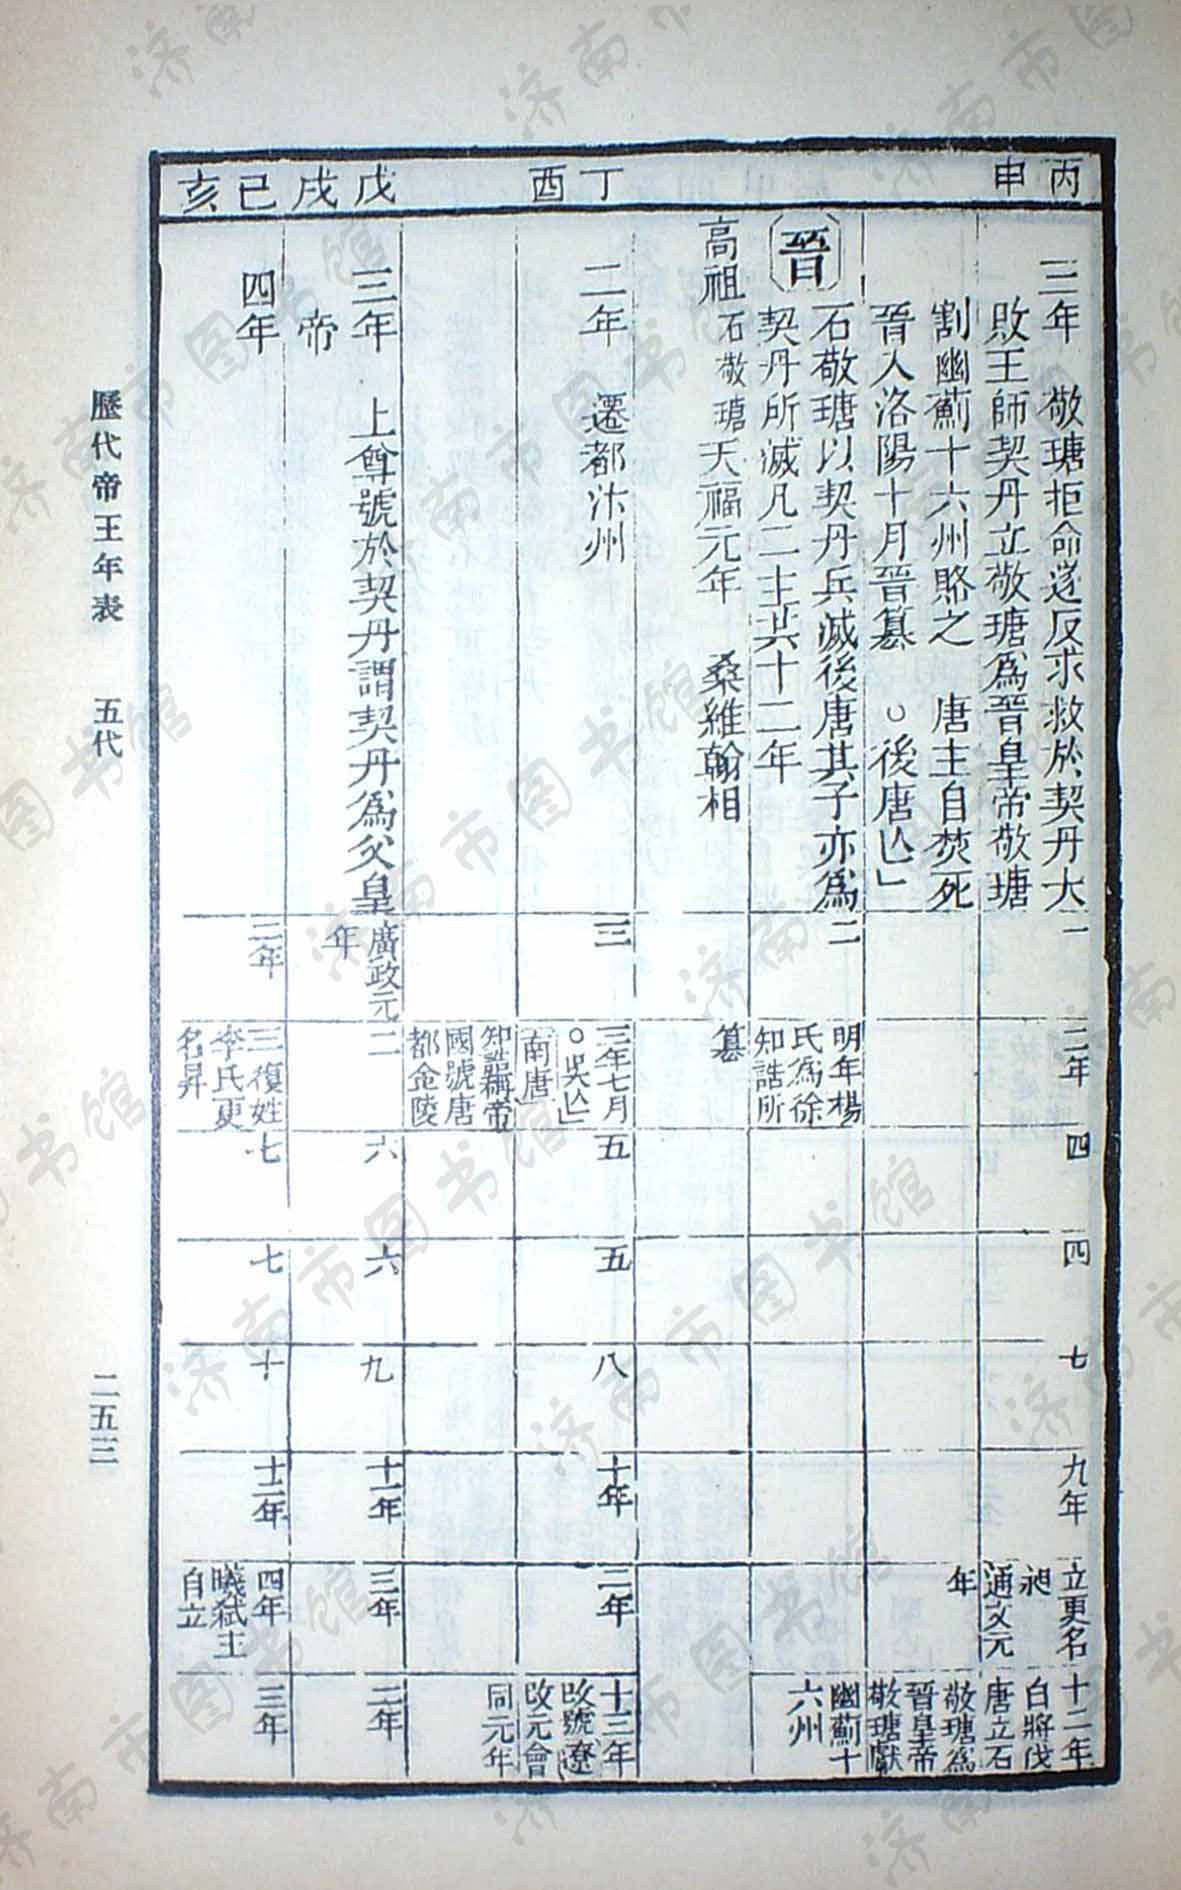 丙申
丁酉
戊戌
己亥
二年 敬瑭拒命遂反求救於契丹大
敗王師契丹立敬瑭爲晉皇帝敬瑭
割幽薊十六州賂之 唐主自焚死
晉入洛陽十月晉篡 ○後唐亾」
〔晉〕石敬瑭以契丹兵滅後唐其子亦爲
契丹所滅凡二主共十二年
高祖石敬瑭天福元年 桑維翰相
二年 遷都汴州
三年 上尊號於契丹謂契丹爲父皇
帝
四年
一
二
三
廣政元
年
二年
二年
明年楊
氏爲徐
知誥所
篡
三年七月
○吳亾」
〔南唐〕
知誥稱帝
國號唐
都金陵
二
三復姓
李氏更
名昇
四
五
六
七
四
五
六
七
七
八
九
十
九年
十年
十一年
十二年
立更名
昶
通文元
年
二年
三年
四年
曦弒主
自立
十二年
白將伐
唐立石
敬瑭爲
晉皇帝
敬瑭獻
幽薊十
六州
十三年
改號遼
改元會
同元年
二年
三年
歷代帝王年表 五代
二五三
济南市图书馆